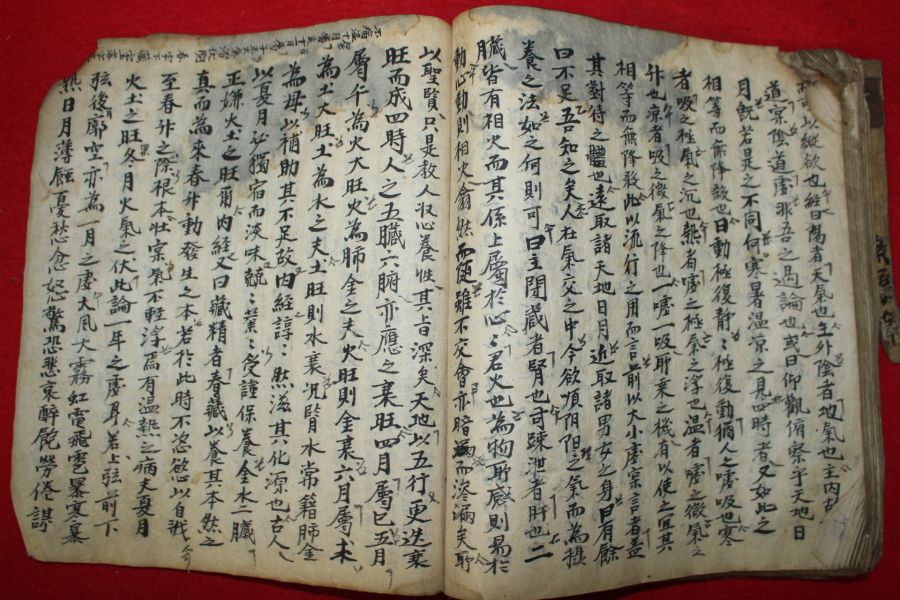 可以縱欲也經曰陽者天氣也主外陰者地氣也主內古
道實陰道虛非吾之過論也或曰仰觀俯察乎天地日
月旣若是之不同何寒暑溫涼之見四時者又如此之
相等而無降殺也曰動極復靜〻極復動猶人之噓吸也寒
者吸之極氣之沉也熱者噓之極氣之浮也溫者噓之微氣之
升也凉者吸之微氣之降也一噓一吸所乘之機有以使之宜其
相等而無降殺此以流行之用而言前以大小虛實言者盖
其對待之體也遠取諸天地日月近取諸男女之身曰有餘
曰不足吾知之矣人在氣交之中今欲順陰陽之氣而為攝
養之法如之何則可曰主閉藏者腎也司踈泄者肝也二
臟皆有相火而其係上屬於心〻君火也為物所感則易於
動心動則相火翕然而隨雖不交會亦暗流而滲漏矣所
以聖賢只是教人収心養性其旨深矣天地以五行更迭衰
旺而成四時人之五臟六腑亦應之衰旺四月屬巳五月
屬午為火大旺火為肺金之夫火旺則金衰六月屬未
為土大旺土為水之夫土旺則水衰况腎水常籍肺金
為母以補助其不足故內經諄〻然滋其化源也古人
以夏月必獨宿而淡味兢〻業〻受謹保養金水二臟
正嫌火土之旺爾內經又曰藏精者春藏以養其本然之
真而為來春升動發生之本若於此時不恣慾以自戕
至春升之際根本壯實氣不輕浮焉有溫熱之病夫夏月
火土之旺冬月火氣之伏此論一年之虛耳若上弦前下
弦後廓空亦為一月之虛大風大霧虹電飛雹暴寒暴
熱日月薄蝕憂愁忿怒驚恐悲哀醉飽勞倦謀